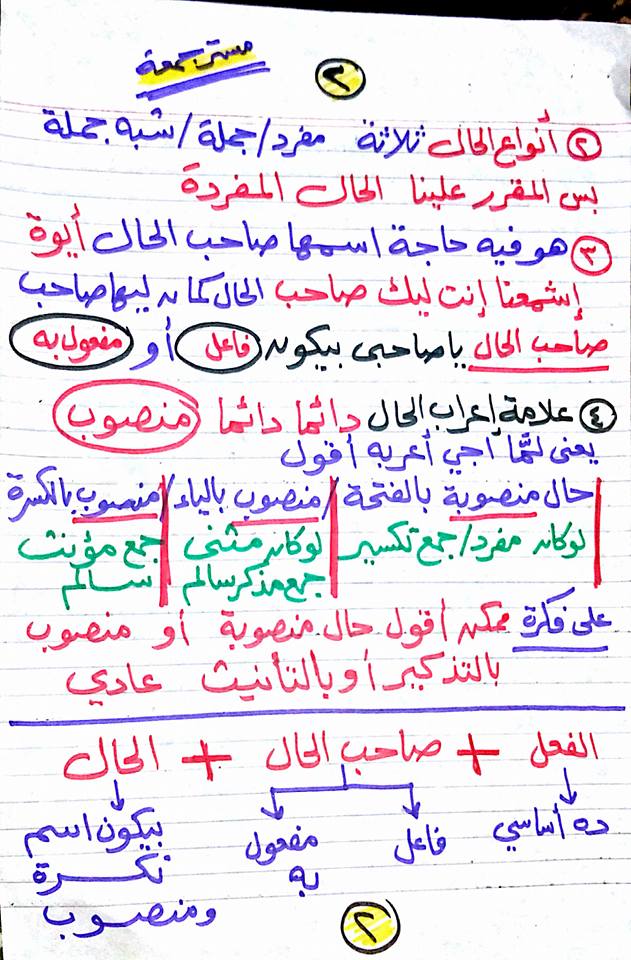 مستر جمعة
٢
٢ أنواع الحال ثلاثة مفرد/جملة/شبه جملة
بس المقرر علينا الحال المفردة
٣ هو فيه حاجة اسمها صاحب الحال أيوة
إشمعنا إنت ليك صاحب الحال كمان ليها صاحب
صاحب الحال ياصاحبى بيكون فاعل أو مفعول به
٤ علامة إعراب الحال دائما دائما منصوب
يعنى لمَّا أجي أعربه أقول
حال منصوبة بالفتحة / منصوب بالياء / منصوب بالكسرة
لوكان مفرد/جمع تكسير لوكان مثنى جمع مؤنث
جمع مذكر سالم سالم
على فكرة ممكن أقول حال منصوبة أو منصوب
بالتذكير أو بالتأنيث عادي
الفعل + صاحب الحال + الحال
ده أساسي فاعل مفعول بيكون اسم
به نكرة
ومنصوب
٢